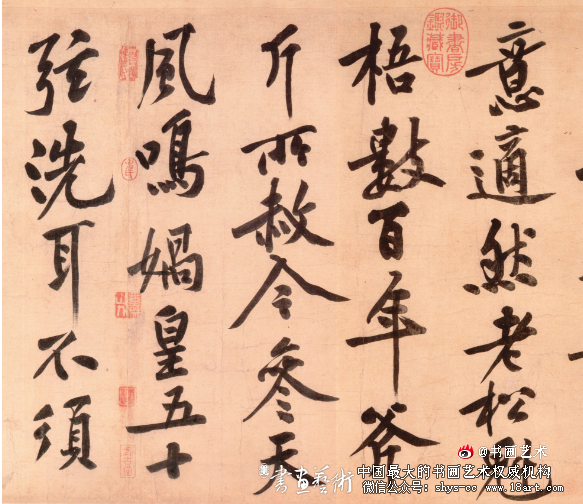 意適然老松魁
梧數百年斧
斤所赦今參天
風鳴媧皇五十
弦洗耳不須
御書房鑑藏寶
@书画艺术
書畫藝術
中国最大的书画艺术权威机构
微信公众号: shys-cc www.18art.com